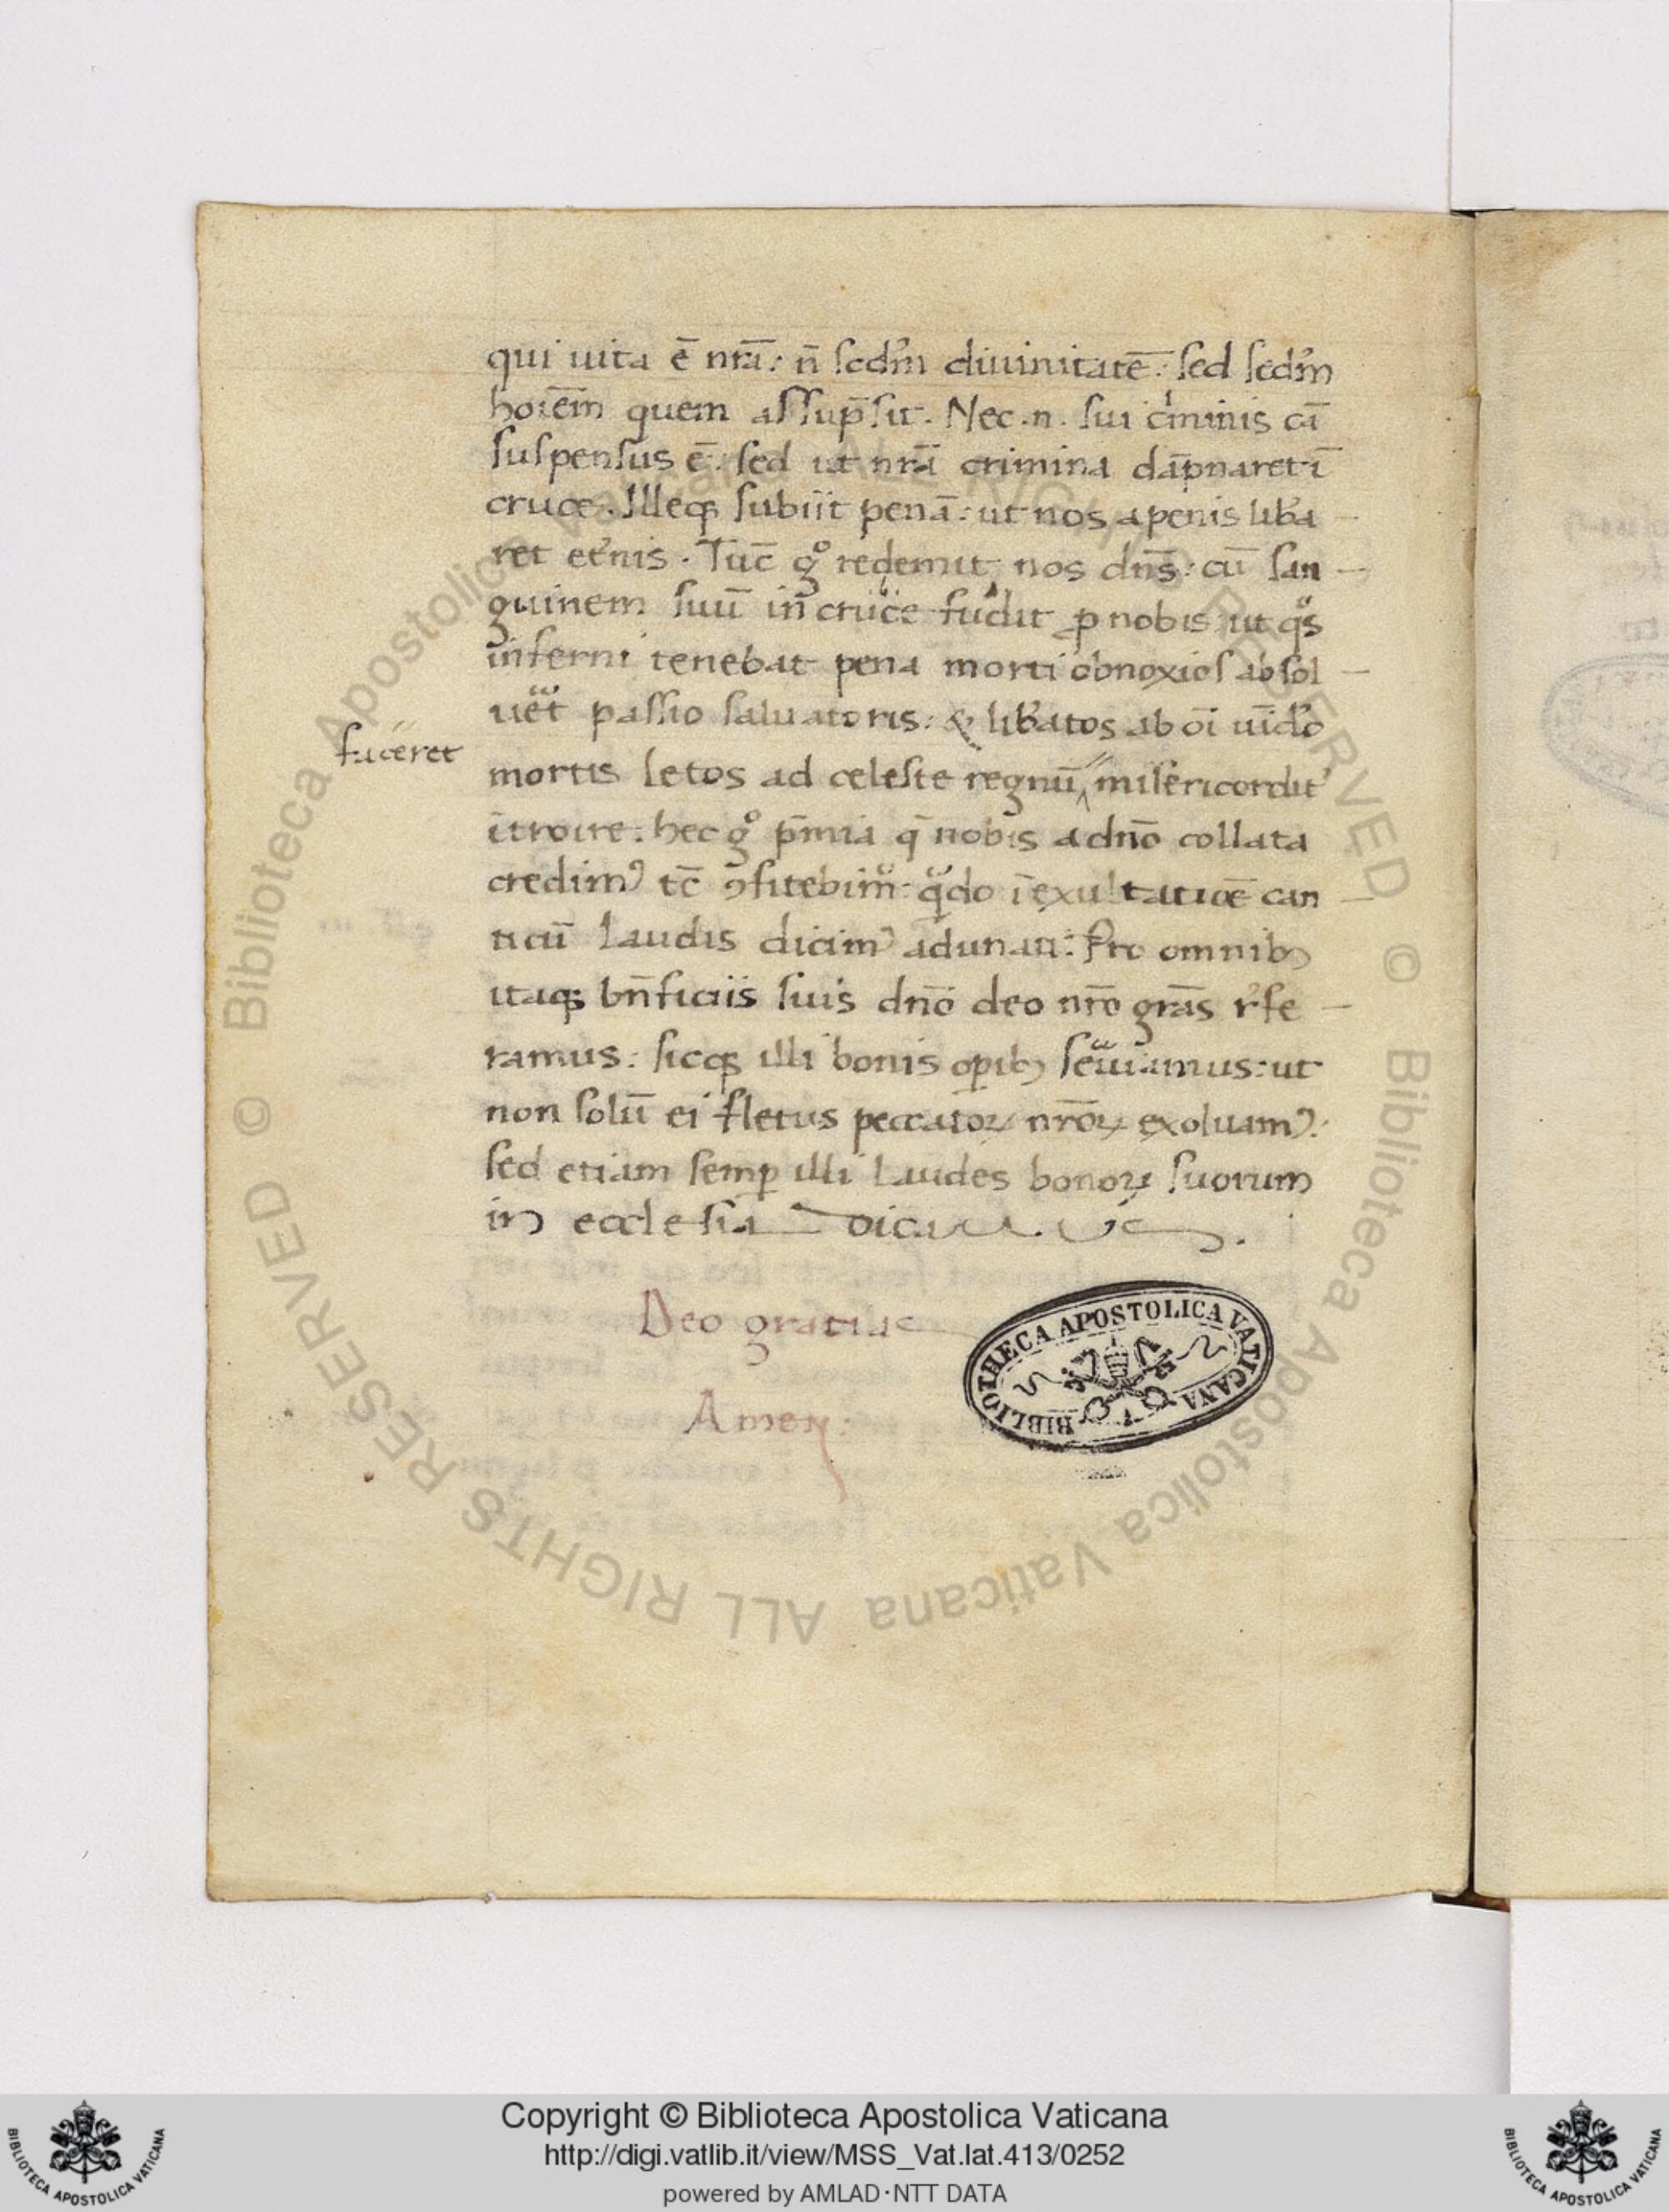 qui uita ē nrā: n̄ scđm diuinitatē: sed scđm
hoiēm quem assup̄sit. Nec .n. sui cͥminis cā
suspensus ē. sed ut nrā crimina dāpnaret ī
cruce. Illeqꝫ subiit penā: ut nos a penis liba
ret et̓nis. Tūc gͦ redemit nos dn̄s: cū san
guinem suū in cruce fudit ꝓ nobis: ut qͦs
inferni tenebat pena morti obnoxios absol
uet passio saluatoris: & libatos ab oī uīclo
faceret
mortis letos ad celeste regnū misericordit̓
ītroire. hec gͦ p̄mia q̄ nobis a dnō collata
credimꝰ tc̄ ꝯfitebimͬ: qͣdo ī exultatiōe can
ticū laudis dicimꝰ adunati: Pro omnibꝫ
itaqꝫ bn̄ficiis suis dnō deo nrō grās r̓fe
ramus: sicqꝫ illi bonis opibꝫ seͬuiamus: ut
non solū ei fletus peccatoꝝ nrōꝝ exoluamꝰ:
sed etiam semꝑ illi laudes bonoꝝ suorum
in ecclesia
Deo gratias
Amen:
BIBLIOTHECA APOSTOLICA VATICANA
© Biblioteca Apostolica Vaticana ALL RIGHTS RESERVED
© Biblioteca Apostolica Vaticana ALL RIGHTS RESERVED
Copyright © Biblioteca Apostolica Vaticana
http://digi.vatlib.it/view/MSS_Vat.lat.413/0252
powered by AMLAD·NTT DATA
BIBLIOTECA APOSTOLICA VATICANA
BIBLIOTECA APOSTOLICA VATICANA